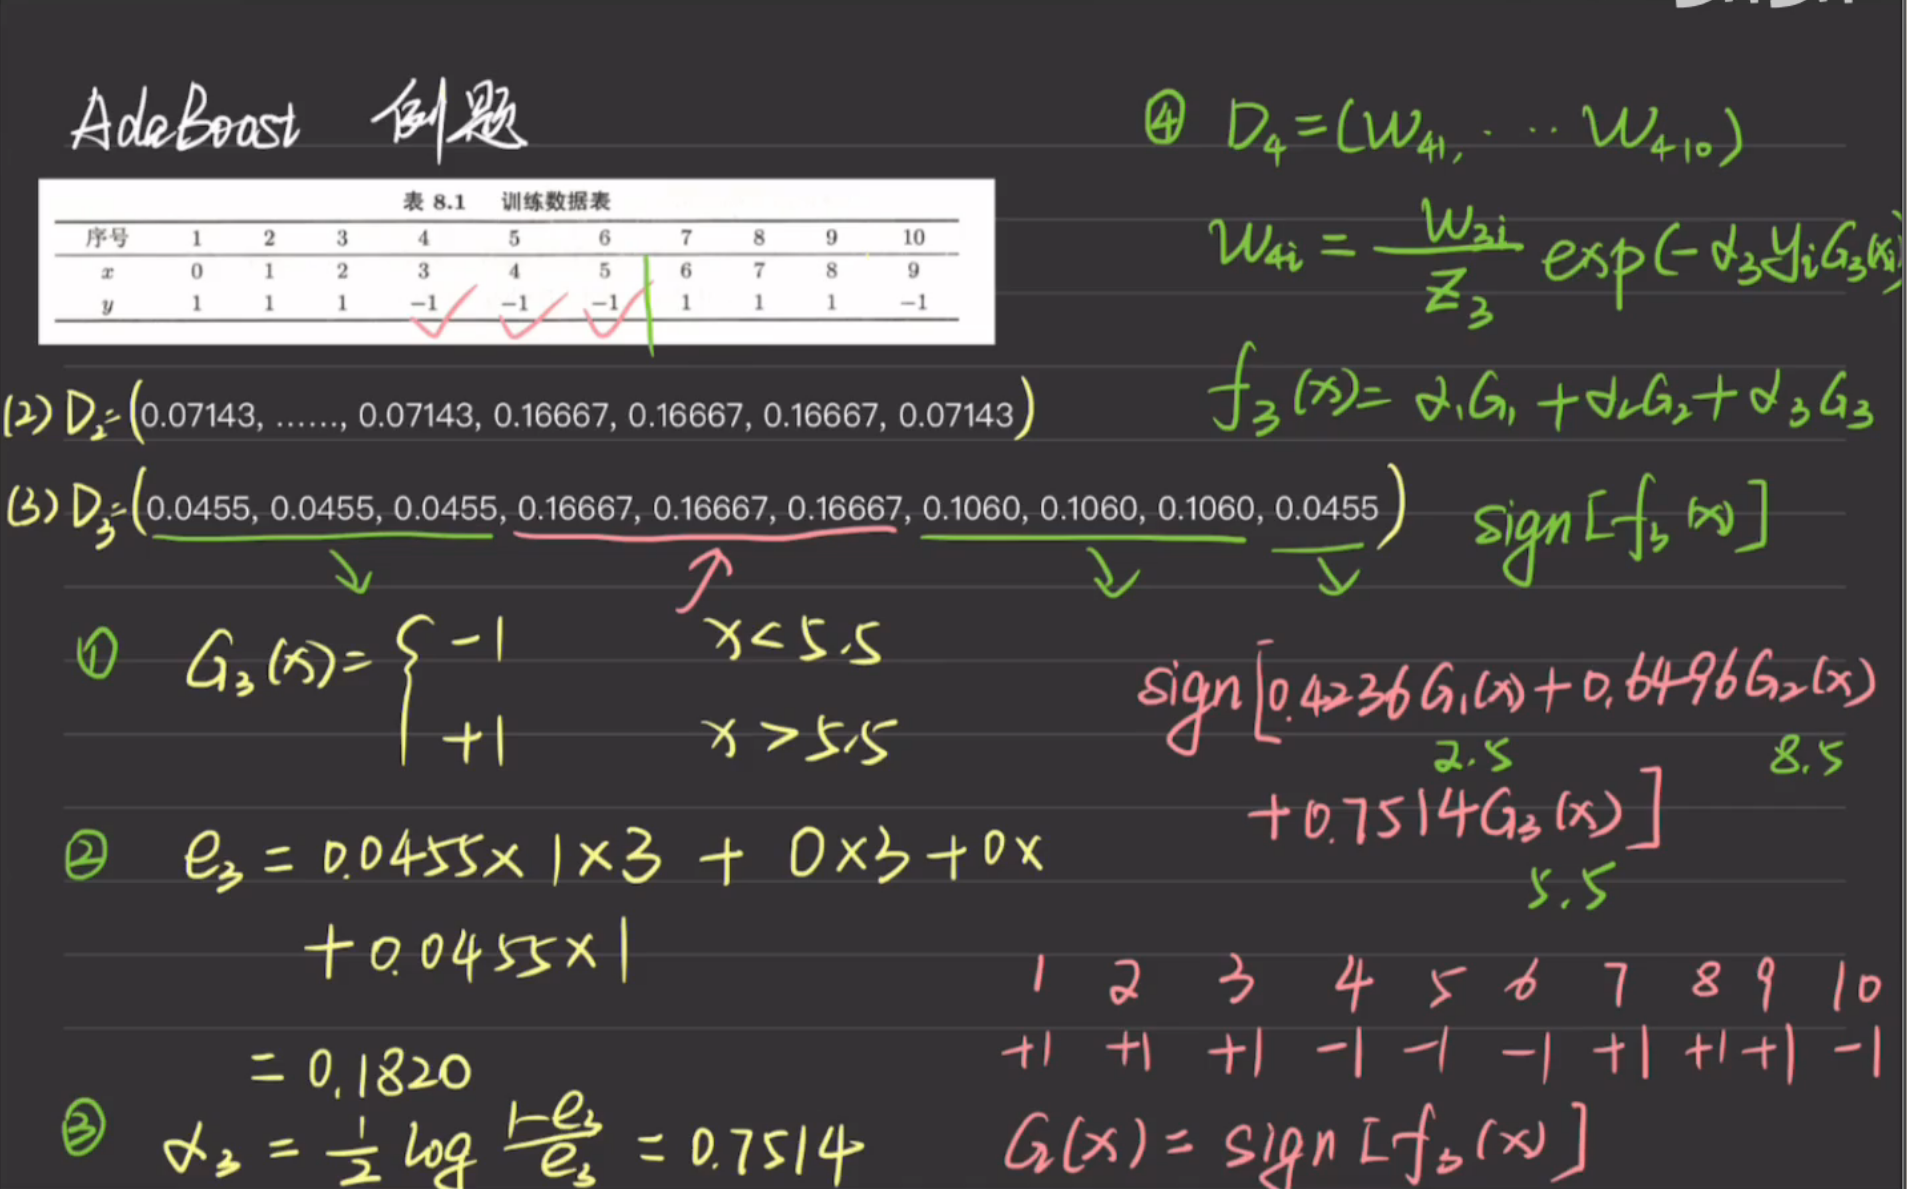 AdaBoost 例题
表 8.1 训练数据表
序号 1 2 3 4 5 6 7 8 9 10
x 0 1 2 3 4 5 6 7 8 9
y 1 1 1 −1 −1 −1 1 1 1 −1
(2) D₂=(0.07143, ......, 0.07143, 0.16667, 0.16667, 0.16667, 0.07143)
(3) D₃=(0.0455, 0.0455, 0.0455, 0.16667, 0.16667, 0.16667, 0.1060, 0.1060, 0.1060, 0.0455)
① G₃(x)= { −1 x<5.5
+1 x>5.5
② e₃ = 0.0455×1×3 + 0×3+0×
+0.0455×1
= 0.1820
③ α₃ = 1/2 log (1−e₃)/e₃ = 0.7514
④ D₄=(W₄₁, ····· W₄₁₀)
W₄ᵢ = W₃ᵢ/Z₃ exp(−α₃yᵢG₃(xᵢ)
f₃(x)= α₁G₁ +α₂G₂+α₃G₃
sign[f₃(x)]
sign[0.4236G₁(x)+0.6496G₂(x)
2.5 8.5
+0.7514G₃(x)]
5.5
1 2 3 4 5 6 7 8 9 10
+1 +1 +1 −1 −1 −1 +1 +1 +1 −1
G(x)= sign[f₃(x)]